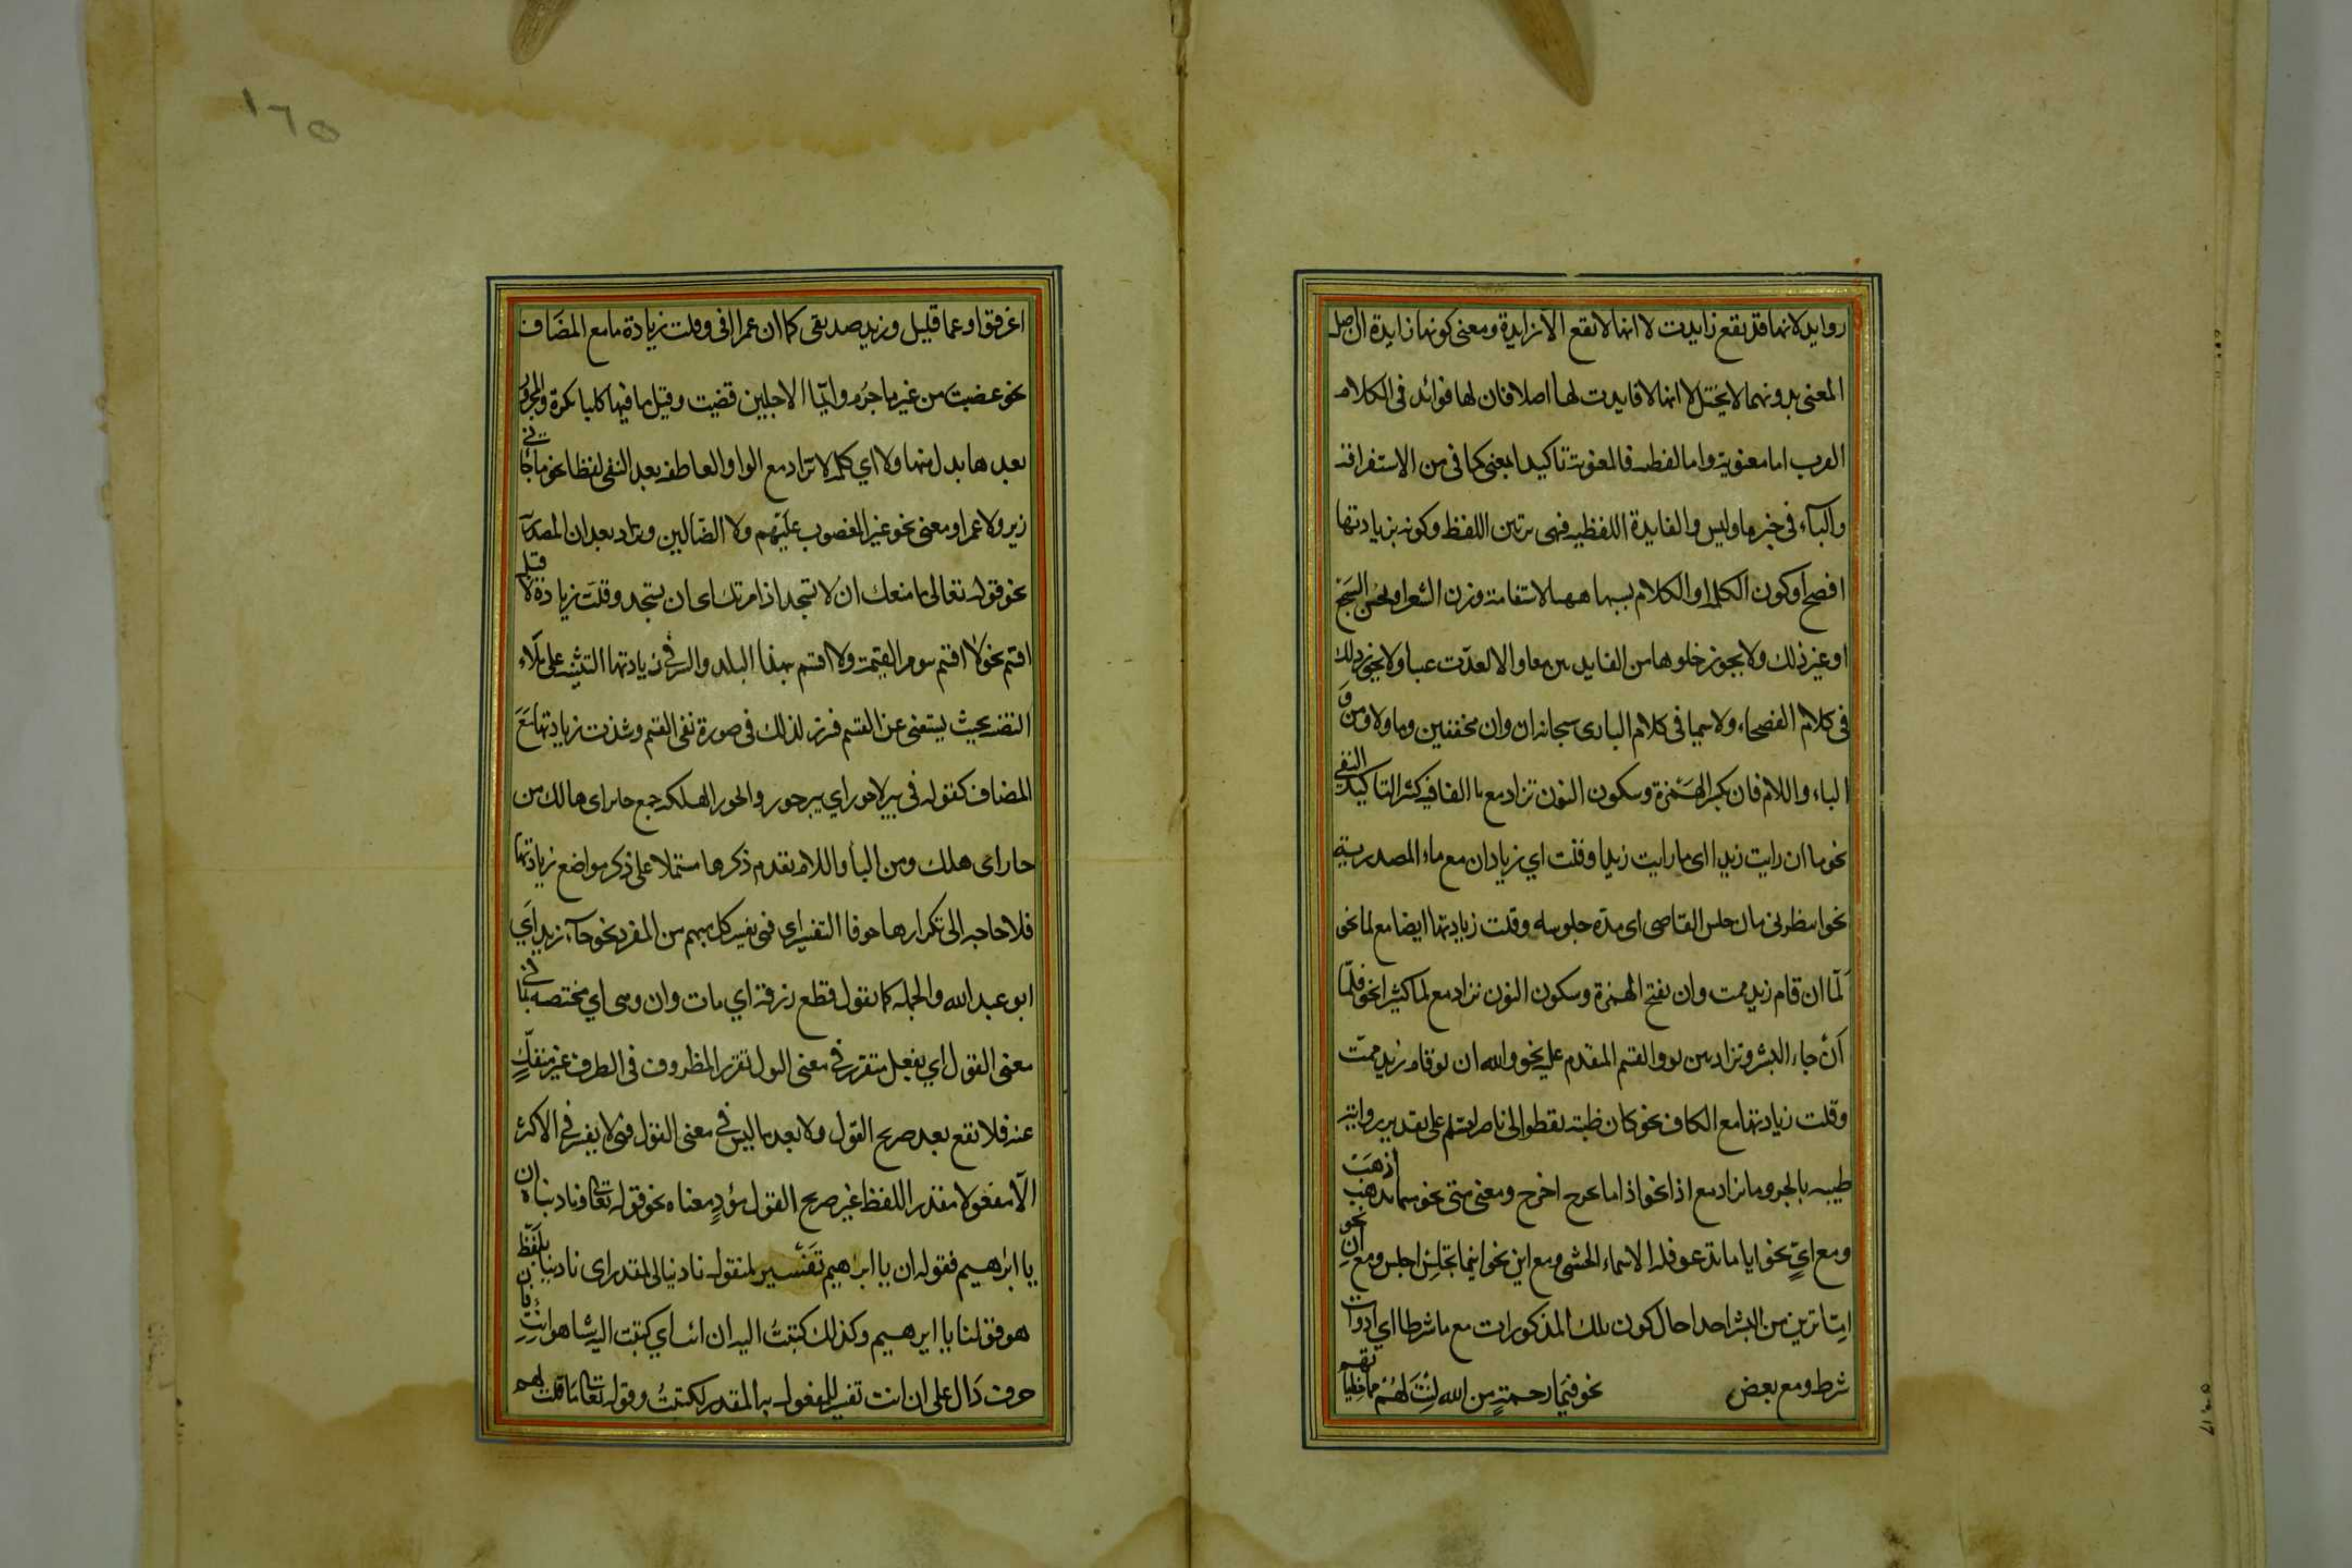 روايد لانها قد يقع زايدت لا انها لا يقع الا زايدة ومعنى كونها زايدة ان اصل
المعنى بدونهما لا يختل لا انها لا فايدت لها اصلا فان لها فوائد فى الكلام
العرب اما معنوية واما لفظيه فالمعنوية تاكيد المعنى كما فى من الاستغراقية
والبآء فى خبر ما وليس والفايدة اللفظيه فهى تزيين اللفظ وكونه بزيادتها
افصح او كون الكلمه او الكلام بسببها مهيا لاستقامة وزن الشعر او لحسن السجع
او غير ذلك ولا يجوز خلوها من الفايدتين معا والا لعدّت عبثا ولا يجوز ذلك
فى كلام الفصحاء ولا سيما فى كلام البارى سبحانه ان وان مخففين وما ولا ومن و
الباء واللام فان بكسر الهَمْزة وسكون النون تزاد مع ما النافيه كثير التاكيد النفى
نحو ما ان رايت زيدا اى ما رايت زيدا وقلت اي زياد ان مع ماء المصدرية
نحو انتظرنى ما ان جلس القاضى اى مدّة جلوسه وقلت زيادتها ايضا مع لما نحو
لمّا ان قام زيد قمت وان بفتح الهمزة وسكون النون تزاد مع لما كثيرا نحو فلمّا
أنْ جاء البشير وتزاد بين لو والقسم المقدم عليه نحو والله ان لو قام زيد قمت
وقلت زيادتها مع الكاف نحو كان ظبية تعطوا الى ناضر السلم على تقدير رواية
ظبيه بالجر وما تزاد مع اذا نحو اذا ما تخرج اخرج ومعنى متى نحو متى ما تذهب اذهَبْ
ومع ايٍّ نحو ايا ما تدعو فله الاسماء الحسنى ومع اين نحو اينما تجلِس اجلس ومع اِن نحو
امّا ترين من البشر احدا حال كون تلك المذكورات مع ما شرطا اي ادوات
شرط ومع بعض نحو فبمَا رحمةٍ من الله لِنْتَ لَهُمْ مما خطيا تهم
اغرقوا وعما قليل وزيد صديقى كما ان عمرا اخى وقلت زيادة ما مع المضَاف
نحو غضبتَ من غير ما جرْم وايّما الاجلين قضيت وقيل ما فيها كلها نكرة والمجرور
بعدها بدل منها ولا اي كلمه لا تزاد مع الواو العاطفه بعد النفى لفظا نحو ما جائنى
زيد ولا عمرا ومعنى نحو غير المغضوب عليهم ولا الضّآلين وتزاد بعد ان المصدرية
نحو قوله تعالى ما منعك ان لا تسجد اذ امرتك اى ان تسجد وقلتَ زيادة لا قبل
اقسم نحو لا اقسم بيوم القيمة ولا اقسم بهذا البلد والسر فى زيادتها التنبيه على جلاء
القضيه بحيث يستغنى عن القسم فبرز لذلك فى صورة نفى القسم وشذت زيادتها مَعَ
المضاف كقوله فى بير لا حور اي بير حور والحور الهلكه جمع حاير اى هالك من
حار اى هلك ومن البأ واللام تقدم ذكرها مشتملا على ذكر مواضع زيادتها
فلا حاجه الى تكرارها حرفا التفسير اى فهى تفسير كل مبهم من المفرد نحو جآء زيد اَي
ابو عبد الله والجمله كما يقول قطع رزقه اي مات وان وهى اي مختصه بما فى
معنى القول اي بفعل متقرر فى معنى القول تقرر المظروف فى الظرف غير منفكٍّ
عنه فلا تقع بعد صريح القول ولا بعد ما ليس فى معنى القول فهى لا يفسر فى الاكثر
الّا مفعولا مقدر اللفظ غير صريح القول مؤدٍ معناه نحو قوله تعالى وناديناه ان
يا ابرٰهيم فقوله ان يا ابراهيم تفسير لمفعول ناديناه المقدر اى ناديناه بلفظٍ
هو قولنا يا ابرهيم وكذلك كتبتُ اليه ان انت اي كتبت اليه شيئا هو انتِ فان
حرف دَال على ان انت تفسير للمفعول به المقدر لكتبتُ وقوله تعالى ما قلت لهم
١٦٥